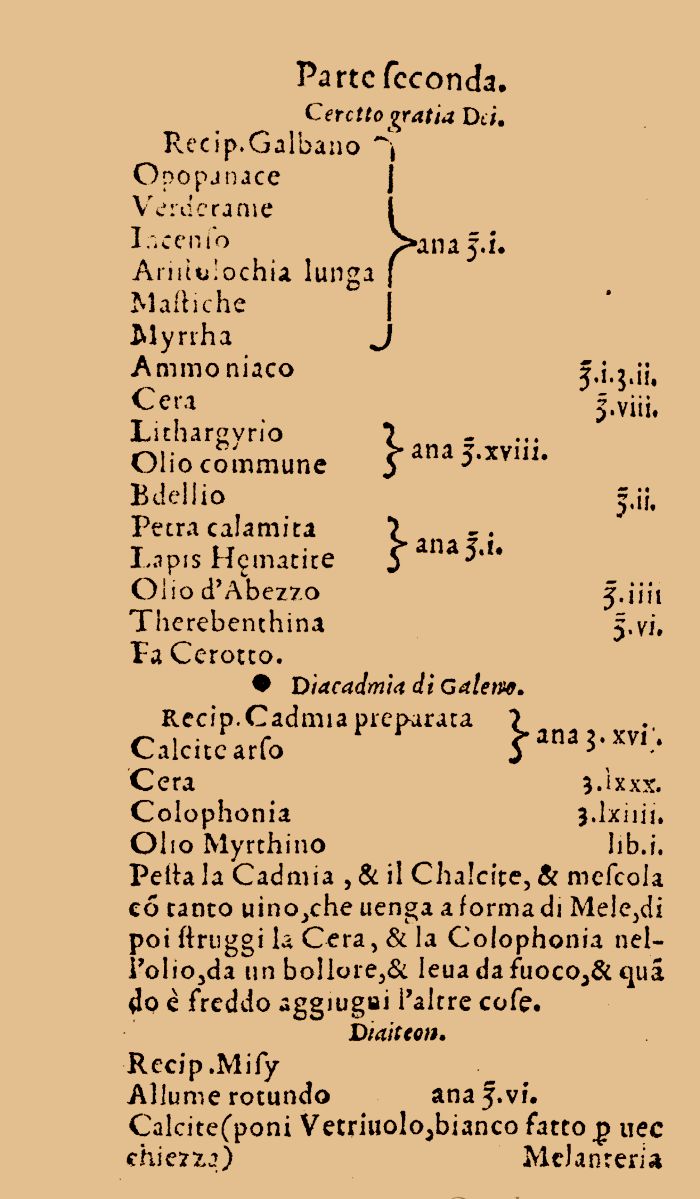 Parte ſeconda.
Cerotto gratia Dei.
Recip. Galbano
Opopanace
Verderame
Incenſo
Ariſtolochia lunga
Maſtiche
Myrrha
ana ℥.i.
Ammoniaco ℥.i.ʒ.ii.
Cera ℥.viii.
Lithargyrio
Olio commune
ana ℥.xviii.
Bdellio ℥.ii.
Petra calamita
Lapis Hęmatite
ana ℥.i.
Olio d'Abezzo ℥.iiii
Therebenthina ℥.vi.
Fa Cerotto.
Diacadmia di Galeno.
Recip. Cadmia preparata
Calcite arſo
ana ʒ. xvi.
Cera ʒ.lxxx.
Colophonia ʒ.lxiiii.
Olio Myrthino lib.i.
Peſta la Cadmia, & il Chalcite, & meſcola
cõ tanto uino, che uenga a forma di Mele, di
poi ſtruggi la Cera, & la Colophonia nel-
l'olio, da un bollore, & leua da fuoco, & quã
do è freddo aggiugui l'altre coſe.
Diaiteon.
Recip. Miſy
Allume rotundo ana ℥.vi.
Calcite (poni Vetriuolo, bianco fatto ꝑ uec
chiezza) Melanteria